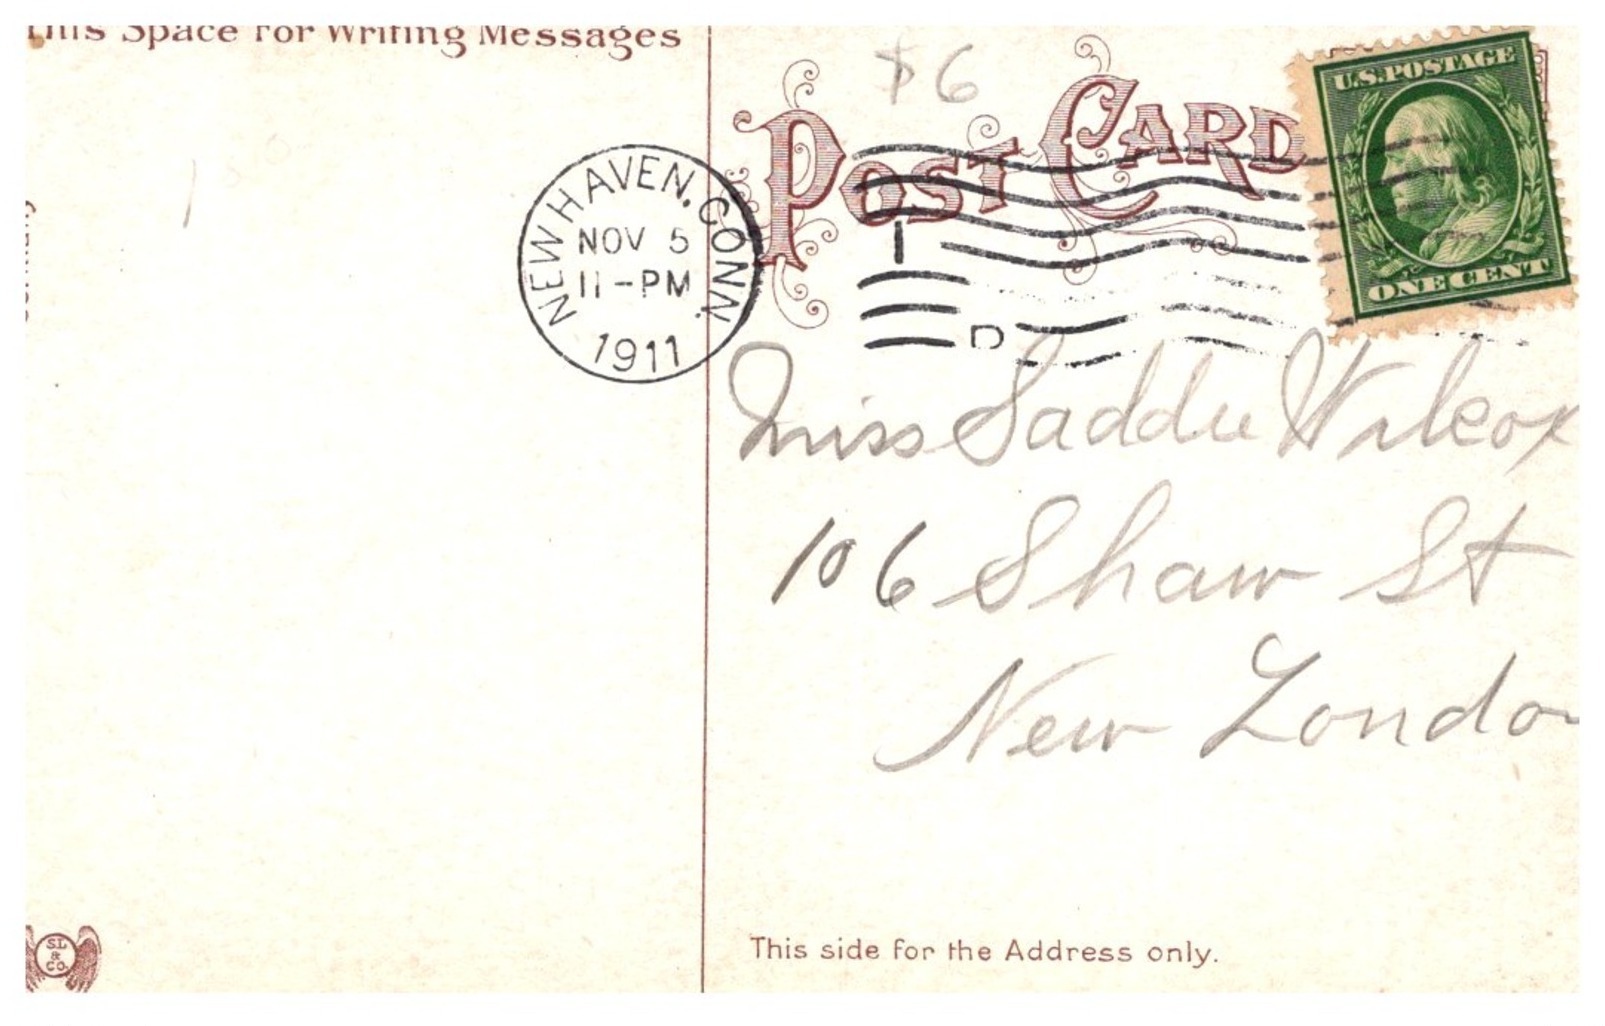 This Space For Writing Messages
$6
POST CARD
U.S. POSTAGE
ONE CENT
NEW HAVEN, CONN.
NOV 5
11-PM
1911
1
D
Miss Saddie Wilcox
106 Shaw St
New London
S.L
&
CO.
This side for the Address only.